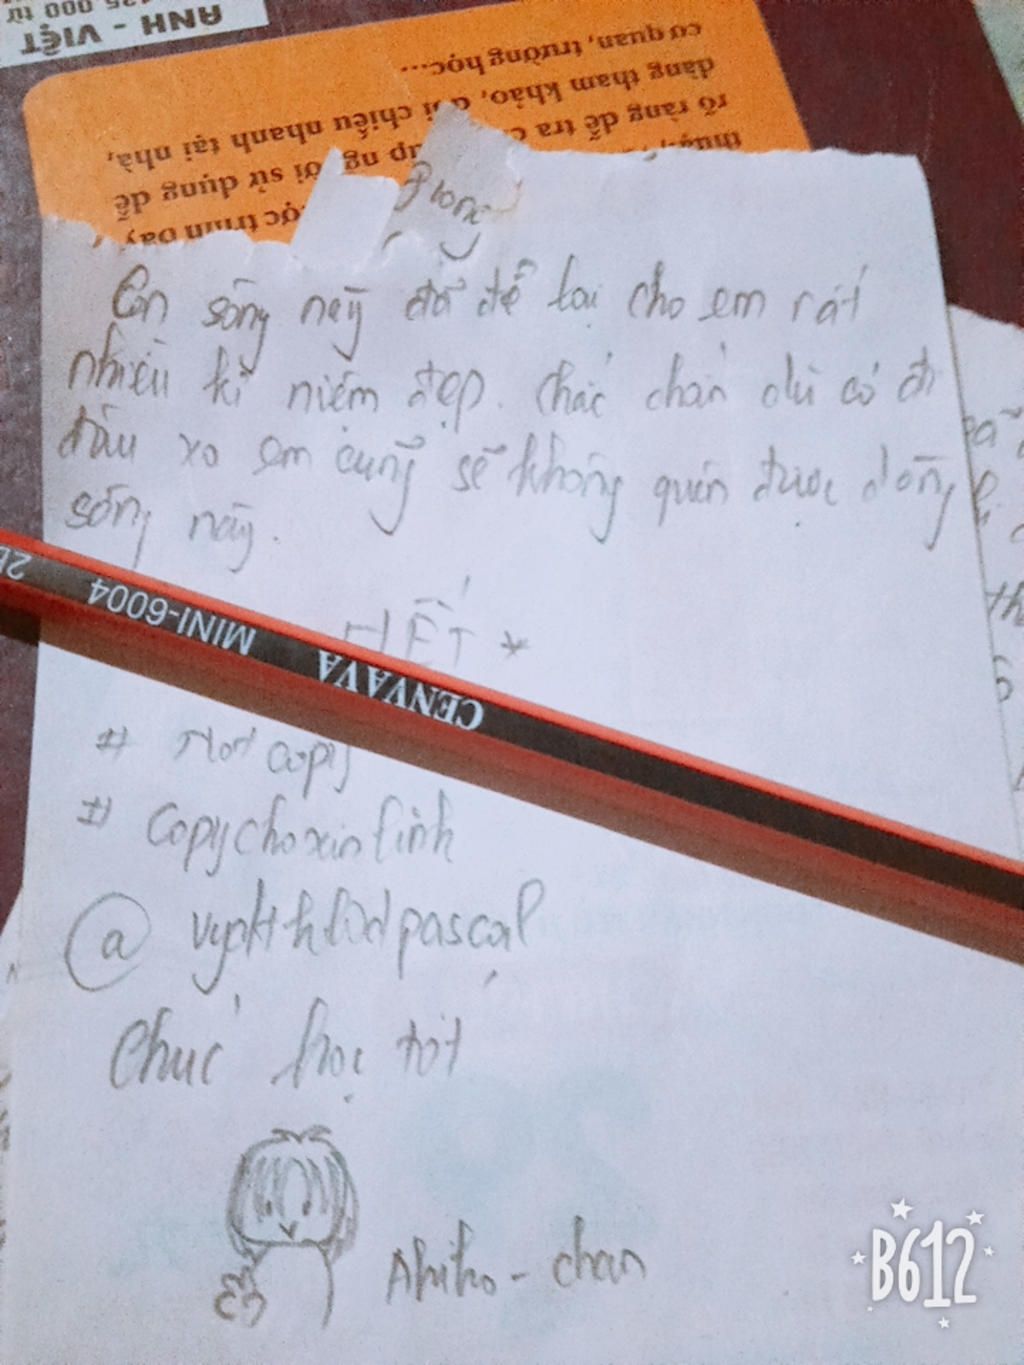 ANH - VIỆT
cơ quan, trường học...
dàng tham khảo, đối chiếu nhanh tại nhà,
rõ ràng dễ tra
người sử dụng dễ
Con sông này đã để lại cho em rất
nhiều kỉ niệm đẹp. Chắc chắn dù có đi
đâu xa em cũng sẽ không quên được dòng
sông này.
HẾT *
CENVAVA MINI-6004
# Not copy
# Copy cho xin link
@
Chúc học tốt
Ahiho - chan
B612